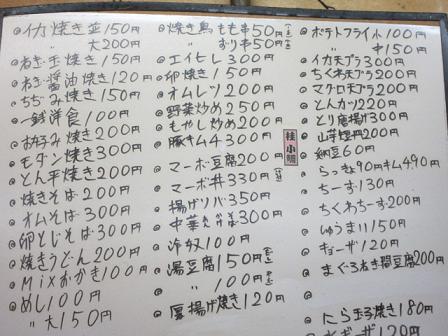 ◎イカ焼き並150円
〃 大200円
◎ねぎ玉焼き150円
◎ねぎ醤油焼き120円
◎ちぢみ焼き150円
◎一銭洋食100円
◎お好み焼き200円
◎モダン焼き300円
◎とん平焼き200円
◎焼きそば200円
◎オムそば300円
◎卵とじそば300円
◎焼きうどん200円
◎Mixおかき100円
◎めし100円
〃 大150円
◎焼き鳥もも串50円
〃 ずり串50円
◎エイヒレ300円
◎卵焼き150円
◎オムレツ200円
◎野菜炒め250円
◎もやし炒め200円
◎豚キムチ300円
◎マーボ豆腐200円
◎マーボ丼330円
◎揚げソバ350円
◎中華そば300円
◎冷奴100円
◎湯豆腐150円
〃 100円
◎厚揚げ焼き120円
桂小鯛
◎ポテトフライ小100円
〃 中150円
◎イカ天プラ300円
◎ちくわ天プラ200円
◎マグロ天プラ200円
◎とんカツ220円
◎とり唐揚げ300円
◎山芋短冊200円
◎納豆60円
◎らっきょ90円キムチ90円
◎ちーず130円
◎ちくわちーず200円
◎しゅうまい150円
◎ギョーザ120円
◎まぐろねぎ間豆腐200円
◎にら玉子焼き180円
◎水ギョーザ120円